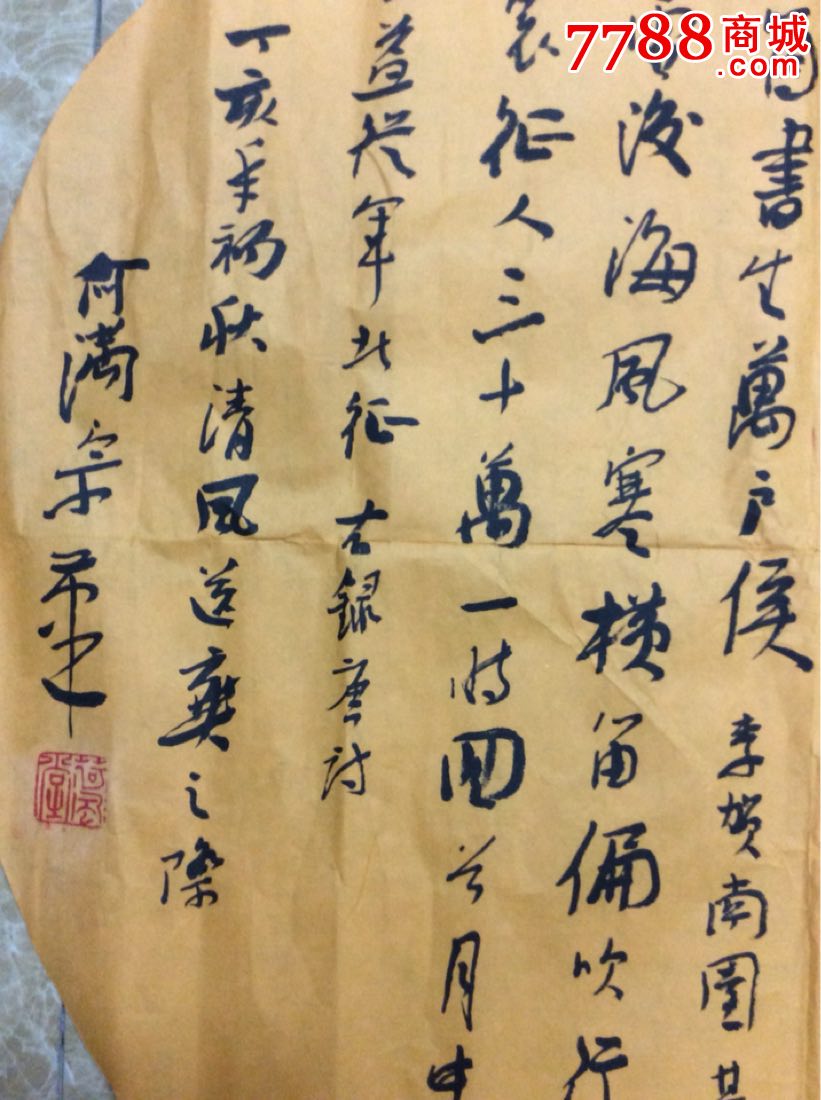 7788商城
.com
書生萬户侯 李賀南園其
後海風寒橫笛偏吹行
征人三十萬一時回首月中
益從軍北征 右録唐詩
丁亥年初秋清風送爽之際
何满宗